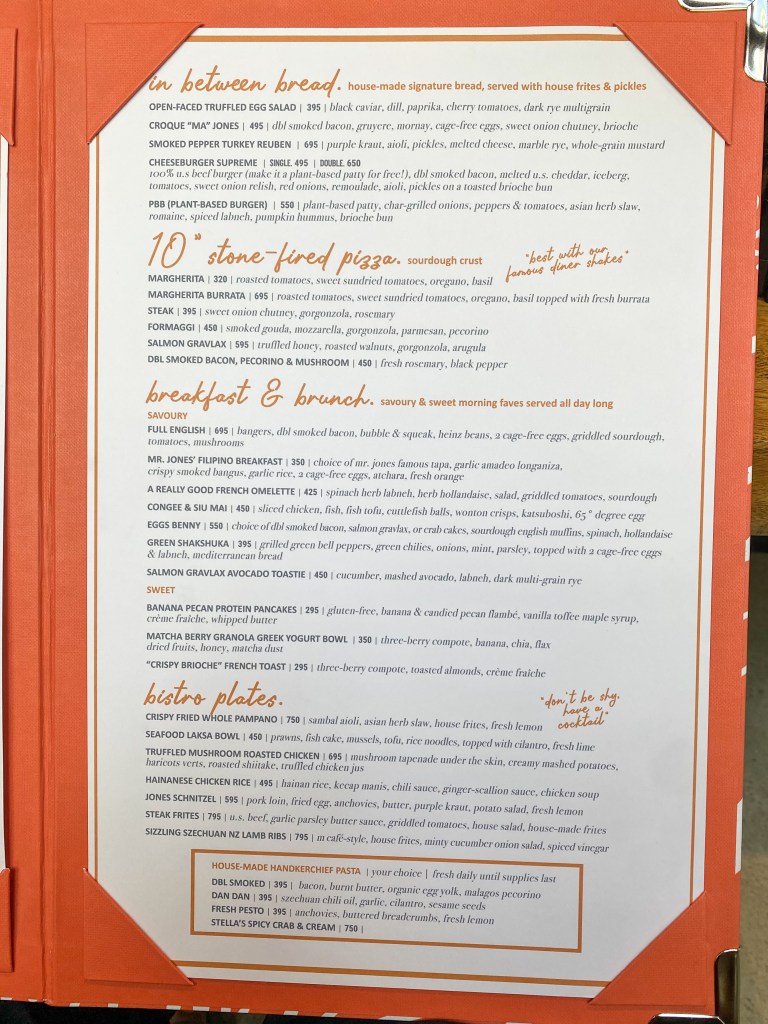 in between bread. house-made signature bread, served with house frites & pickles
OPEN-FACED TRUFFLED EGG SALAD | 395 | black caviar, dill, paprika, cherry tomatoes, dark rye multigrain
CROQUE "MA" JONES | 495 | dbl smoked bacon, gruyere, mornay, cage-free eggs, sweet onion chutney, brioche
SMOKED PEPPER TURKEY REUBEN | 695 | purple kraut, aioli, pickles, melted cheese, marble rye, whole-grain mustard
CHEESEBURGER SUPREME | SINGLE. 495 | DOUBLE. 650
100% u.s beef burger (make it a plant-based patty for free!), dbl smoked bacon, melted u.s. cheddar, iceberg,
tomatoes, sweet onion relish, red onions, remoulade, aioli, pickles on a toasted brioche bun
PBB (PLANT-BASED BURGER) | 550 | plant-based patty, char-grilled onions, peppers & tomatoes, asian herb slaw,
romaine, spiced labneh, pumpkin hummus, brioche bun
10" stone-fired pizza. sourdough crust
"best with our
famous diner shakes"
MARGHERITA | 320 | roasted tomatoes, sweet sundried tomatoes, oregano, basil
MARGHERITA BURRATA | 695 | roasted tomatoes, sweet sundried tomatoes, oregano, basil topped with fresh burrata
STEAK | 395 | sweet onion chutney, gorgonzola, rosemary
FORMAGGI | 450 | smoked gouda, mozzarella, gorgonzola, parmesan, pecorino
SALMON GRAVLAX | 595 | truffled honey, roasted walnuts, gorgonzola, arugula
DBL SMOKED BACON, PECORINO & MUSHROOM | 450 | fresh rosemary, black pepper
breakfast & brunch. savoury & sweet morning faves served all day long
SAVOURY
FULL ENGLISH | 695 | bangers, dbl smoked bacon, bubble & squeak, heinz beans, 2 cage-free eggs, griddled sourdough,
tomatoes, mushrooms
MR. JONES' FILIPINO BREAKFAST | 350 | choice of mr. jones famous tapa, garlic amadeo longaniza,
crispy smoked bangus, garlic rice, 2 cage-free eggs, atchara, fresh orange
A REALLY GOOD FRENCH OMELETTE | 425 | spinach herb labneh, herb hollandaise, salad, griddled tomatoes, sourdough
CONGEE & SIU MAI | 450 | sliced chicken, fish, fish tofu, cuttlefish balls, wonton crisps, katsuboshi, 65° degree egg
EGGS BENNY | 550 | choice of dbl smoked bacon, salmon gravlax, or crab cakes, sourdough english muffins, spinach, hollandaise
GREEN SHAKSHUKA | 395 | grilled green bell peppers, green chilies, onions, mint, parsley, topped with 2 cage-free eggs
& labneh, mediterranean bread
SALMON GRAVLAX AVOCADO TOASTIE | 450 | cucumber, mashed avocado, labneh, dark multi-grain rye
SWEET
BANANA PECAN PROTEIN PANCAKES | 295 | gluten-free, banana & candied pecan flambé, vanilla toffee maple syrup,
crème fraîche, whipped butter
MATCHA BERRY GRANOLA GREEK YOGURT BOWL | 350 | three-berry compote, banana, chia, flax
dried fruits, honey, matcha dust
"CRISPY BRIOCHE" FRENCH TOAST | 295 | three-berry compote, toasted almonds, crème fraîche
bistro plates.
"don't be shy.
have a
cocktail"
CRISPY FRIED WHOLE PAMPANO | 750 | sambal aioli, asian herb slaw, house frites, fresh lemon
SEAFOOD LAKSA BOWL | 450 | prawns, fish cake, mussels, tofu, rice noodles, topped with cilantro, fresh lime
TRUFFLED MUSHROOM ROASTED CHICKEN | 695 | mushroom tapenade under the skin, creamy mashed potatoes,
haricots verts, roasted shiitake, truffled chicken jus
HAINANESE CHICKEN RICE | 495 | hainan rice, kecap manis, chili sauce, ginger-scallion sauce, chicken soup
JONES SCHNITZEL | 595 | pork loin, fried egg, anchovies, butter, purple kraut, potato salad, fresh lemon
STEAK FRITES | 795 | u.s. beef, garlic parsley butter sauce, griddled tomatoes, house salad, house-made frites
SIZZLING SZECHUAN NZ LAMB RIBS | 795 | m café-style, house frites, minty cucumber onion salad, spiced vinegar
HOUSE-MADE HANDKERCHIEF PASTA | your choice | fresh daily until supplies last
DBL SMOKED | 395 | bacon, burnt butter, organic egg yolk, malagos pecorino
DAN DAN | 395 | szechuan chili oil, garlic, cilantro, sesame seeds
FRESH PESTO | 395 | anchovies, buttered breadcrumbs, fresh lemon
STELLA'S SPICY CRAB & CREAM | 750 |